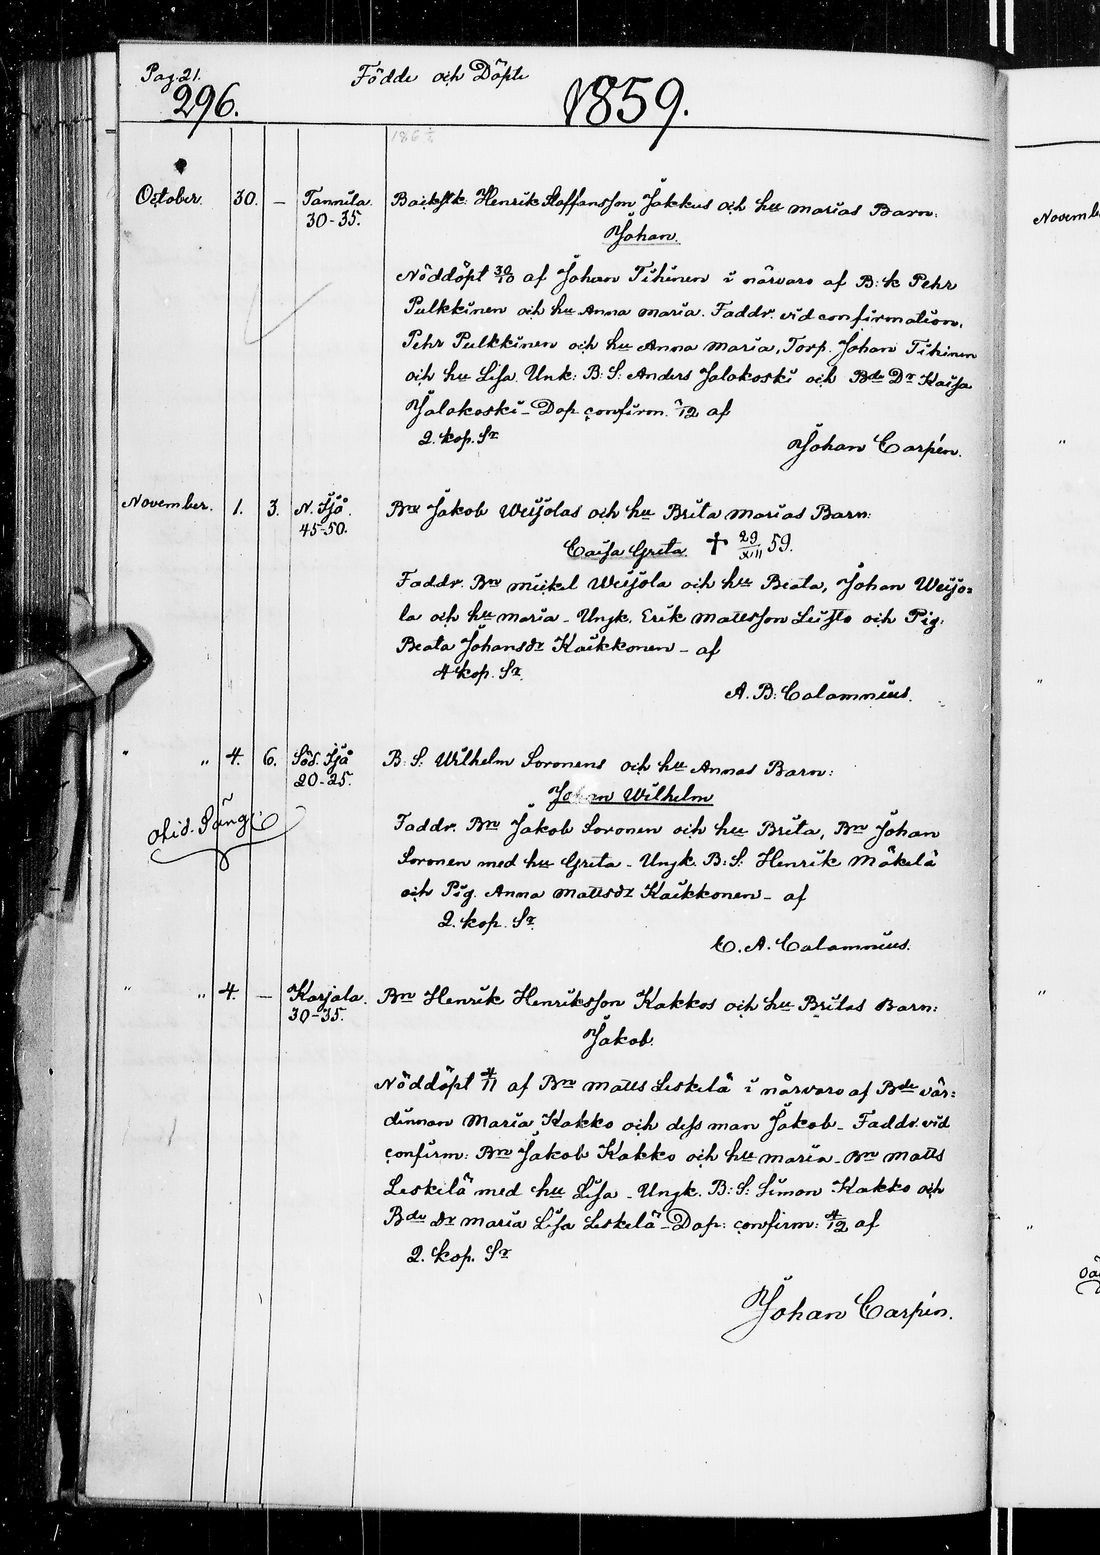 Pag. 21. Födde och Döpte
296. 1859.
October. 30. – Tannila. Backstk. Henrik Staffansson Jakkus och hu Marias Barn:
30-35. Johan.
Nöddöpt 30/10 af Johan Tihinen i närvaro af B:k Pehr
Pulkkinen och hu Anna Maria. Faddr. vid confirmation.
Pehr Pulkkinen och hu Anna Maria, Torp. Johan Tihinen
och hu Lisa. Unk: B: S: Anders Jalokoski och Bde Dr Kaisa
Jalokoski – Dop confirm. /12 af
2. kop. Sr
Johan Carpén.
November. 1. 3. N. Sjö. Bns Jakob Weijolas och hu Brita Marias Barn:
45-50. Caisa Greta. † 29/XII 59.
Faddr. Bn Mickel Weijola och hu Beata, Johan Weijo=
la och hu Maria – Ungk. Erik Mattsson Leisto och Pig:
Beata Johansdr Kaikkonen – af
4 kop. Sr.
A. B: Calamnius.
" " 4. 6. Söd. Sjå B: S: Wilhelm Soronens och hu Annas Barn:
20-25. Johan Wilhelm
Faddr. Bn Jakob Soronen och hu Brita, Bn Johan
Soronen med hu Greta – Ungk. B: S: Henrik Mäkelä
och Pig. Anna Mattsdr Kaikkonen – af
2. kop. Sr.
C. A. Calamnius.
" " 4. – Karjala. Bn Henrik Henriksson Kakkos och hu Britas Barn:
30-35. Jakob.
Nöddöpt 4/11 af Bn Matts Leskelä i närvaro af Bde vär=
dinnan Maria Kakko och dess man Jakob – Faddr. vid
confirm: Bn Jakob Kakko och hu Maria – Bn Matts
Leskelä med hu Lisa – Ungk. B: S: Simon Kakko och
Bde dr Maria Lisa Leskelä – Dop: confirm: 4/12 af
2. kop. Sr
Johan Carpén.
Novemb